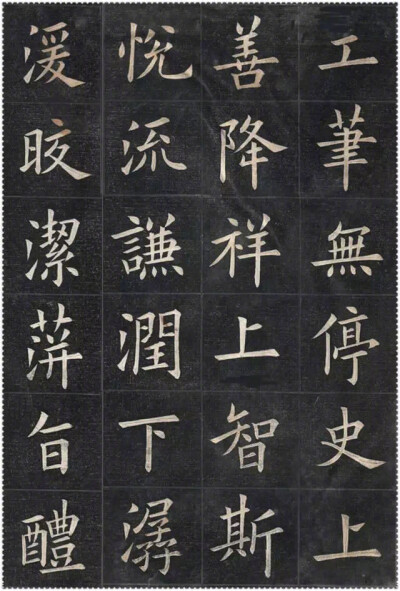 工筆無停史上
善降祥上智斯
悅流謙潤下潺
湲晈潔蓱旨醴